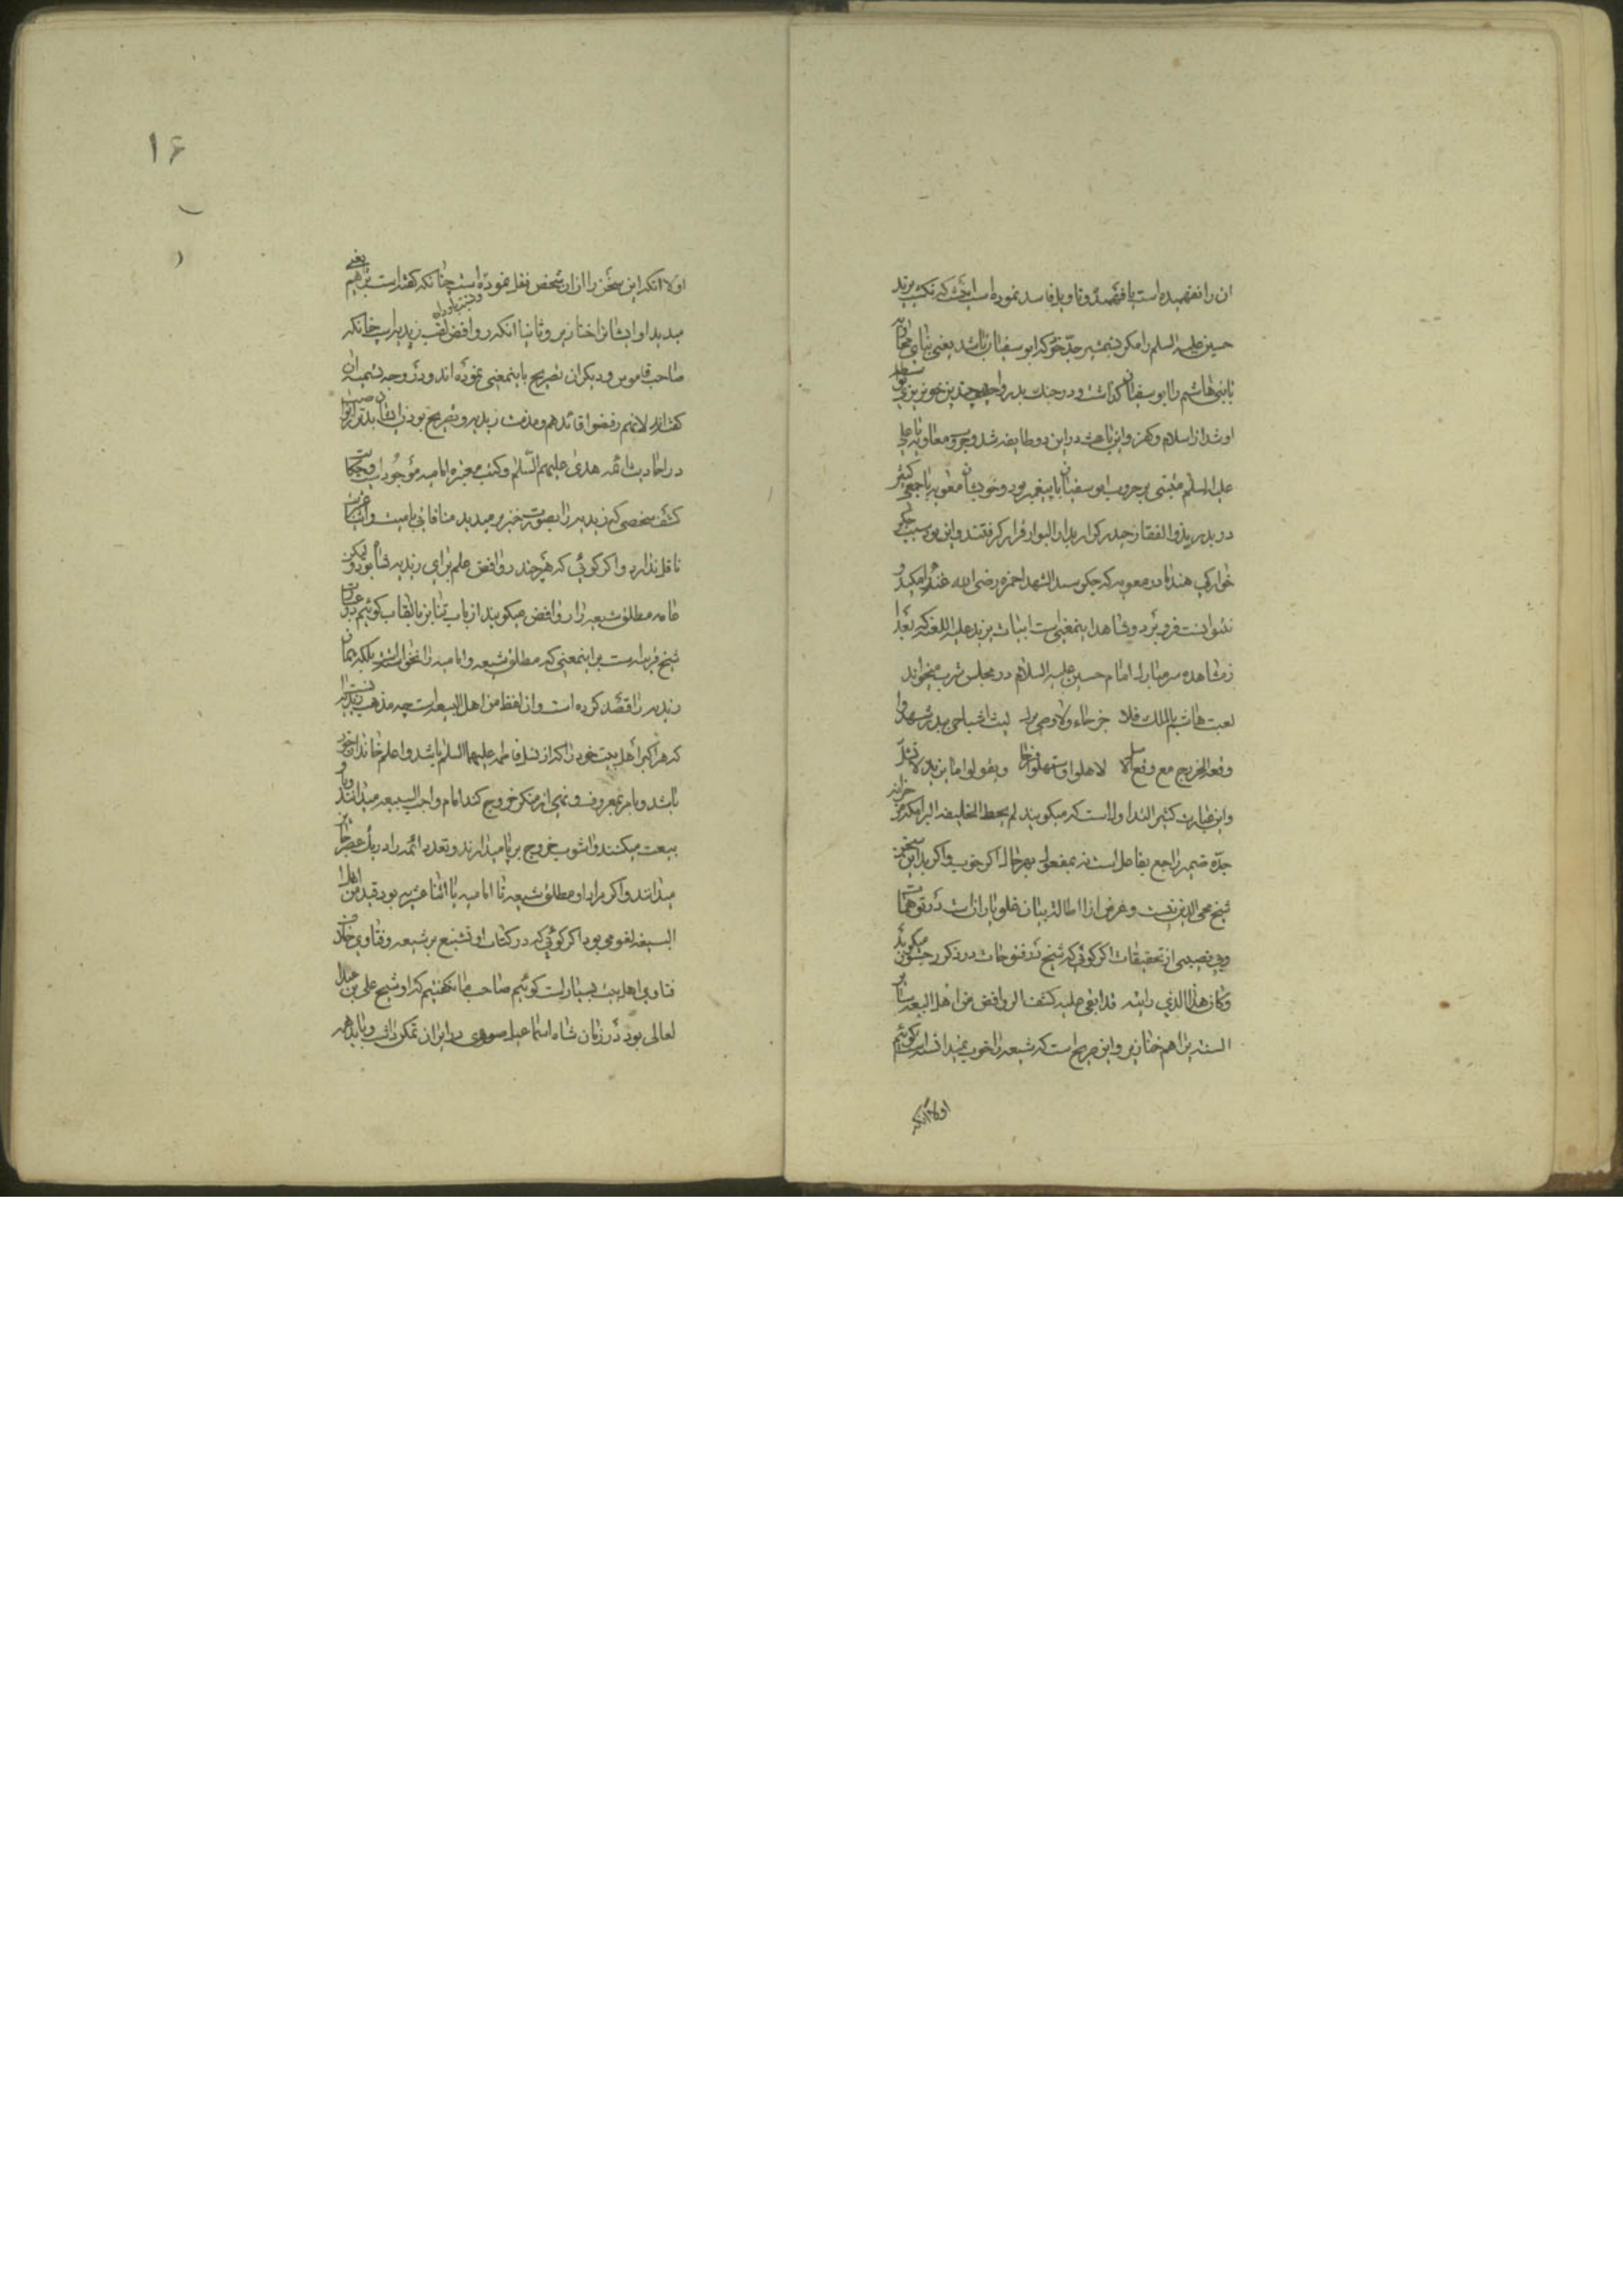 ان را نفهمیده است یا فهمیده و تاویل فاسد نموده است این است که نکشت یزید
حسین علیه السلم را مگر بشمشیر جدّ خود که ابو سفیان باشد یعنی بنای محاربه
با بنی هاشم را ابو سفیان گذاشت و در جنک بدر واحد چندین خونریزی
او شد از اسلام و کفر و این باعث در این دو طایفه شد و حرب معاویه با علی
علیه السلم مبتنی بر حروب ابو سفیان با پیغمبر بود و خود معویه با جمعی کثیر
در بدر بذو الفقار حیدر کرار بدار البوار قرار گرفتند و این بود سبب جگر
خوارکی هند مادر معویه که جگر سید الشهدا حمزه رضی الله عنه را مکید و
نتوانست فرو برد و شاهد اینمعنی است ابیات یزید علیه اللعنه که بعد از
مشاهده سر مبارک امام حسین علیه السلام در مجلس شرب میخواند
لعبت هاشم بالملک فلا خبر جاء ولا وحی نزل لیت اشیاخی ببدر شهدوا
وقعة الخزرج مع وقع الاسل لاهلوا واستهلوا فرحا ویقولوا یا یزید لا تشل
و این عبارت کثیر التداول است که میکویند لم یحط الخلیفة البرامکة من
جدّه ضمیر راجع بفاعل است نه بمفعول بهر حال اگر خوب و اگر بد این سخن از
شیخ محی الدین نیست و غرض از اطالة بیان غلو یاران است در توهمات
وبی نصیبی از تحقیقات اگر کوئی که شیخ در فتوحات در ذکر رجبیون میکوید
وکان هذا الذی رایته قد ابقی علیه کشف الروافض من اهل الشیعه سائر
السنة یراهم خنازیر و این صریح است که شیعه را خوب نمیدانسته است کوئیم
اولا انکه
۱۶
اولا انکه این سخن را از ان شخص نقل نموده است چنانکه گفته است یراهم یعنی
میدید او ایشان را خنازیر و ثانیا انکه روافض لقب زیدیه است چنانکه
صاحب قاموس و دیکران تصریح باینمعنی نموده اند و در وجه تسمیه ان
گفته اند لانهم رفضوا قائدهم و مذمت زیدیه و تصریح
در احادیث ائمه هدی علیهم السّلم و کتب معتبره امامیه موجود است و حکایت
کشف شخصی که زیدیه را بصورت خنزیر میدید منافاتی با میت و
ناقل ندارد و اگر کوئی که هر چند روافض علم برای زیدیه شده بود لیکن
عامه مطلق شیعه را روافض میکویند از باب تنابز بالقاب کوئیم در عبارت
شیخ قرینه است بر اینمعنی که مطلق شیعه و امامیه را نخواسته است بلکه همان
زیدیه را قصد کرده است و ان لفظ من اهل الشیعه است چه مذهب زیدیه اینست
که هر اکبر اهل بیت خود را که از نسل فاطمه علیها السلم باشد و اعلم خاندان خود
باشد و بامر بمعروف و نهی از منکر خروج کند امام واجب البیعه میدانند و با او
بیعت میکنند و اشوب خروج بر پا میدارند و تعدد ائمه را در یک عصر جایز
میدانند و اگر مراد او مطلق شیعه یا امامیه یا اثنا عشریه بود قید من اهل
الشیعه لغو می بود اگر کوئی که در کتاب او تشنیع بر شیعه و فتاوی خلاف
فتاوی اهل بیت بسیار است کوئیم صاحب ما گفتیم که او شیخ علی بن عبدال
لعالی بود در زمان شاه اسماعیل صفوی در ایران تمکن داشت و باید همه